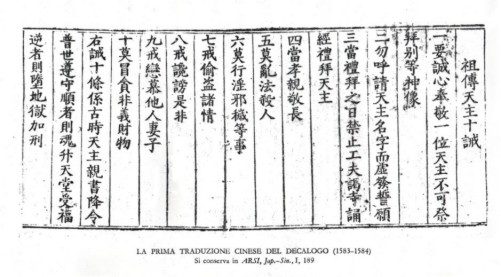 祖傳天主十誡
一要誠心奉敬一位天主不可祭
拜别等神像
二勿呼請天主名字而虛發誓願
三當禮拜之日禁止工夫謁寺誦
經禮拜天主
四當孝親敬長
五莫亂法殺人
六莫行淫邪穢等事
七戒偷盗諸情
八戒讒謗是非
九戒戀慕他人妻子
十莫冒貪非義財物
右誡十條係古時天主親書降令
普世遵守順者則魂升天堂受福
逆者則墮地獄加刑
LA PRIMA TRADUZIONE CINESE DEL DECALOGO (1583-1584)
Si conserva in ARSI, Jap.-Sin., I, 189